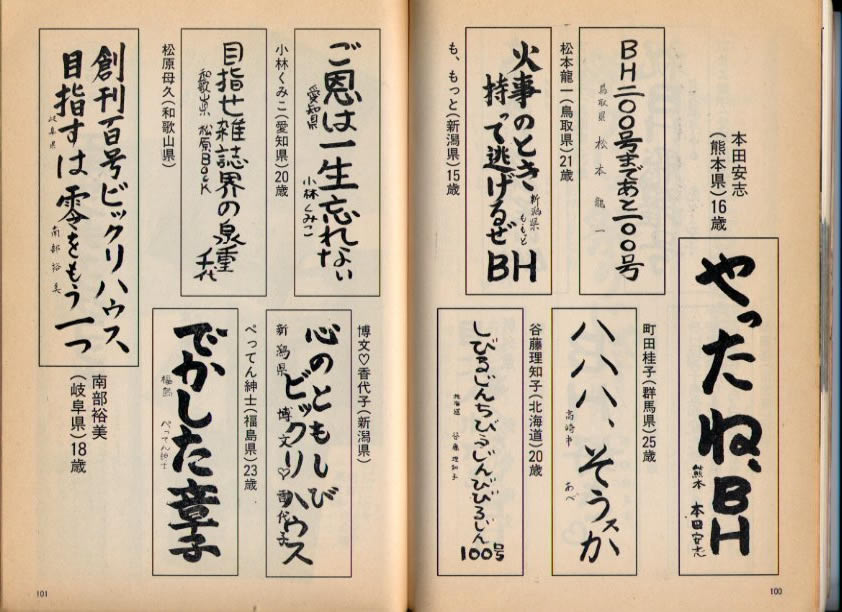 本田安志
(熊本県)16歳
やったね、BH
熊本 本田安志
BH二〇〇号まであと一〇〇号
鳥取県 松本龍一
松本龍一(鳥取県)21歳
火事のとき、
持って逃げるぜBH
新潟県
ももっと
も、もっと(新潟県)15歳
町田桂子(群馬県)25歳
ハハハ、そうスか
高崎市 あべ
谷藤理知子(北海道)20歳
しびるじんちびるじんびびるじん
100号
北海道 谷藤理知子
100
ご恩は一生忘れない
愛知県
小林くみこ
小林くみこ(愛知県)20歳
目指せ雑誌界の泉重千代
和歌山県 松原BacK
松原母久(和歌山県)
博文♡香代子(新潟県)
心のともしび
ビックリハウス
新潟県 博文♡香代子
ぺってん紳士(福島県)23歳
でかした章子
福島 ぺってん紳士
創刊百号ビックリハウス
目指すは零をもう一つ
岐阜県 南部裕美
南部裕美
(岐阜県)18歳
101